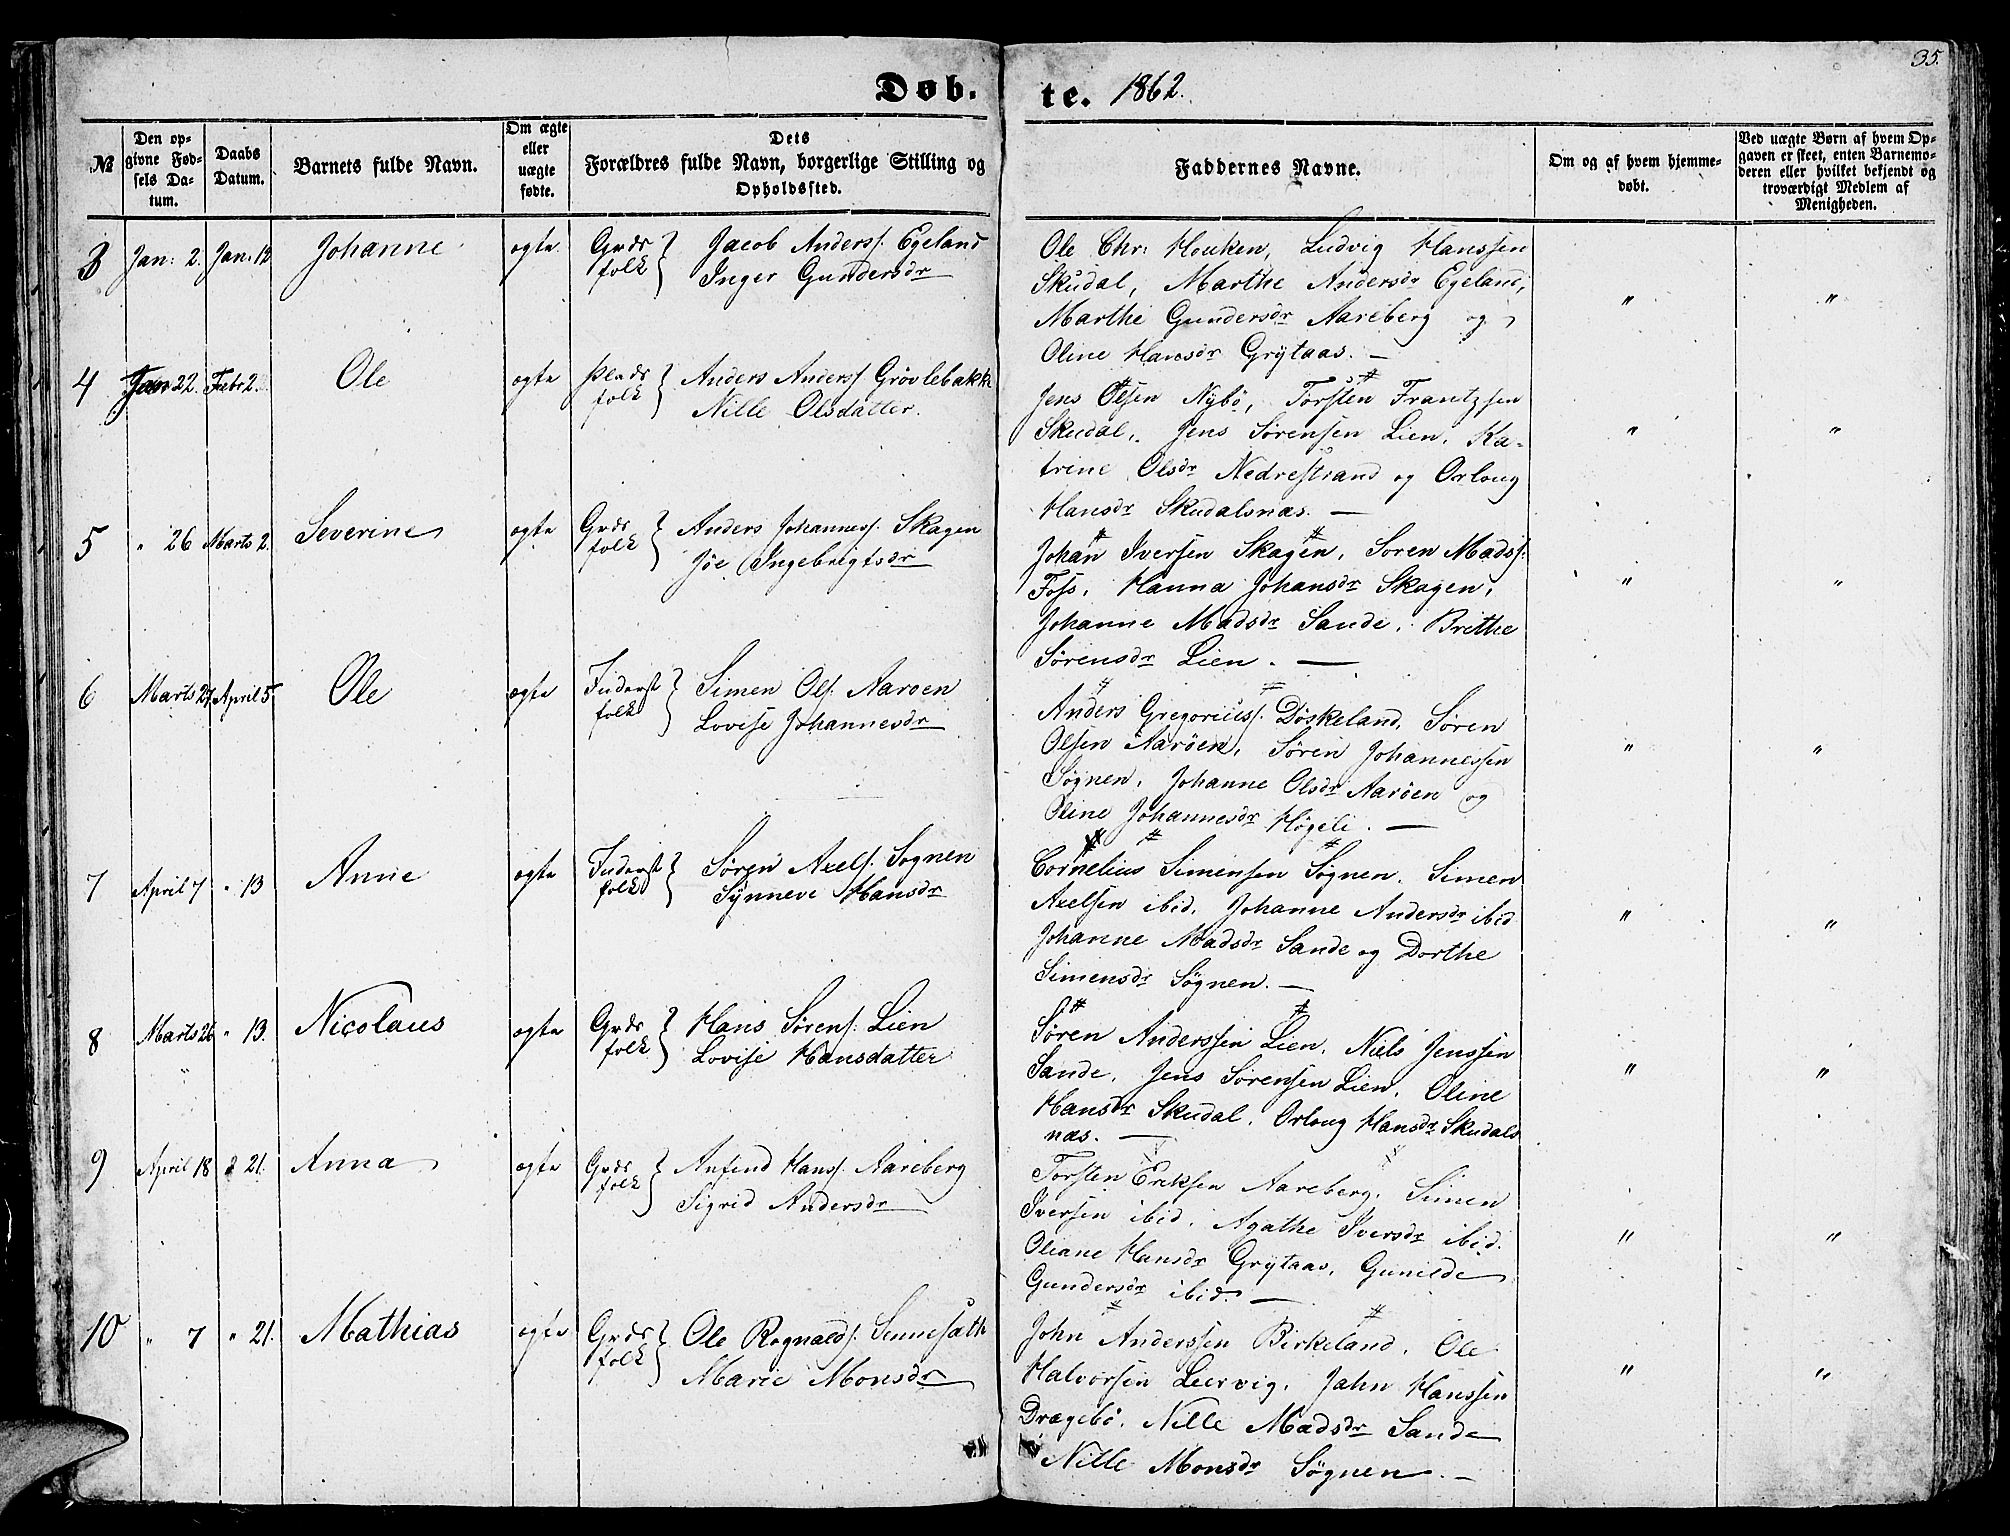 35.
Døb. te. 1862.
№
Den opgivne Fødsels Datum.
Daabs Datum.
Barnets fulde Navn.
Om ægte eller uægte fødte.
Dets Forældres fulde Navn, borgerlige Stilling og Opholdssted.
Faddernes Navne.
Om og af hvem hjemmedøbt.
Ved uægte Børn af hvem Opgaven er skeet, enten Barnemoderen eller hvilket bekjendt og troværdigt Medlem af Menigheden.
3 Jan: 2. Jan. 12 Johanne ægte Grds folk } Jacob Anderss. Egeland
Inger Gundersdr
Ole Chr: Houken, Ludvig Hanssen
Skudal, Marthe Andersdr Egeland,
Marthe Gundersdr Aareberg og
Oline Hansdr Grytaas. —
" "
4 Jan 22. Febr 2. Ole ægte Plads folk } Anders Anderss. Grøvlebakke
Nille Olsdatter.
Jens Olsen Nybö, Torsten Frantzsen
Skudal, Jens Sørensen Lien, Ka-
trine Olsdr Nedrestrand og Orloug
Hansdr Skudalsnæs. —
" "
5 " 26 Marts 2. Severine ægte Grds folk } Anders Johanness. Skagen
Jöe Ingebrigtsdr
Johan Iversen Skagen, Soren Madss.
Foss, Hanna Johansdr Skagen,
Johanne Madsdr Sande, Brithe
Sørensdr Lien. —
" "
6 Marts 27 April 5 Ole ægte Inderst folk } Simen Ols. Aaröen
Lovise Johannesdr
Anders Gregoriuss. Döskeland, Søren
Olsen Aaröen, Søren Johannessen
Søgnen, Johanne Olsdr Aaröen og
Oline Johannesdr Høgeli. —
" "
7 April 7 " 13 Anne ægte Inderst folk } Søren Axels. Sognen
Synneve Hansdr
Cornelius Simensen Søgnen, Simen
Axelsen ibid, Johanne Andersdr ibid
Johanne Madsdr Sande og Dorthe
Simensdr Søgnen. —
" "
8 Marts 26 " 13. Nicolaus ægte Grds folk } Hans Sørens. Lien
Lovise Hansdatter
Søren Anderssen Lien, Niels Jenssen
Sande, Jens Sørensen Lien, Oline
Hansdr Skudal, Orloug Hansdr Skudals
næs. —
" "
9 April 18 " 21. Anna ægte Grds folk } Anfind Hanss. Aareberg
Sigrid Andersdr
Torsten Eriksen Aareberg, Simen
Iversen ibid, Agathe Iversdr ibid.
Oliane Hansdr Grytaas, Gunilde
Gundersdr ibid. —
" "
10 " 7 " 21. Mathias ægte Grds folk } Ole Rognalds. Sennesæth
Marie Monsdr
John Anderssen Birkeland, Ole
Halvorsen Leervig, John Hanssen
Drægebö, Nille Madsdr Sande
Nille Monsdr Søgnen. —
" "